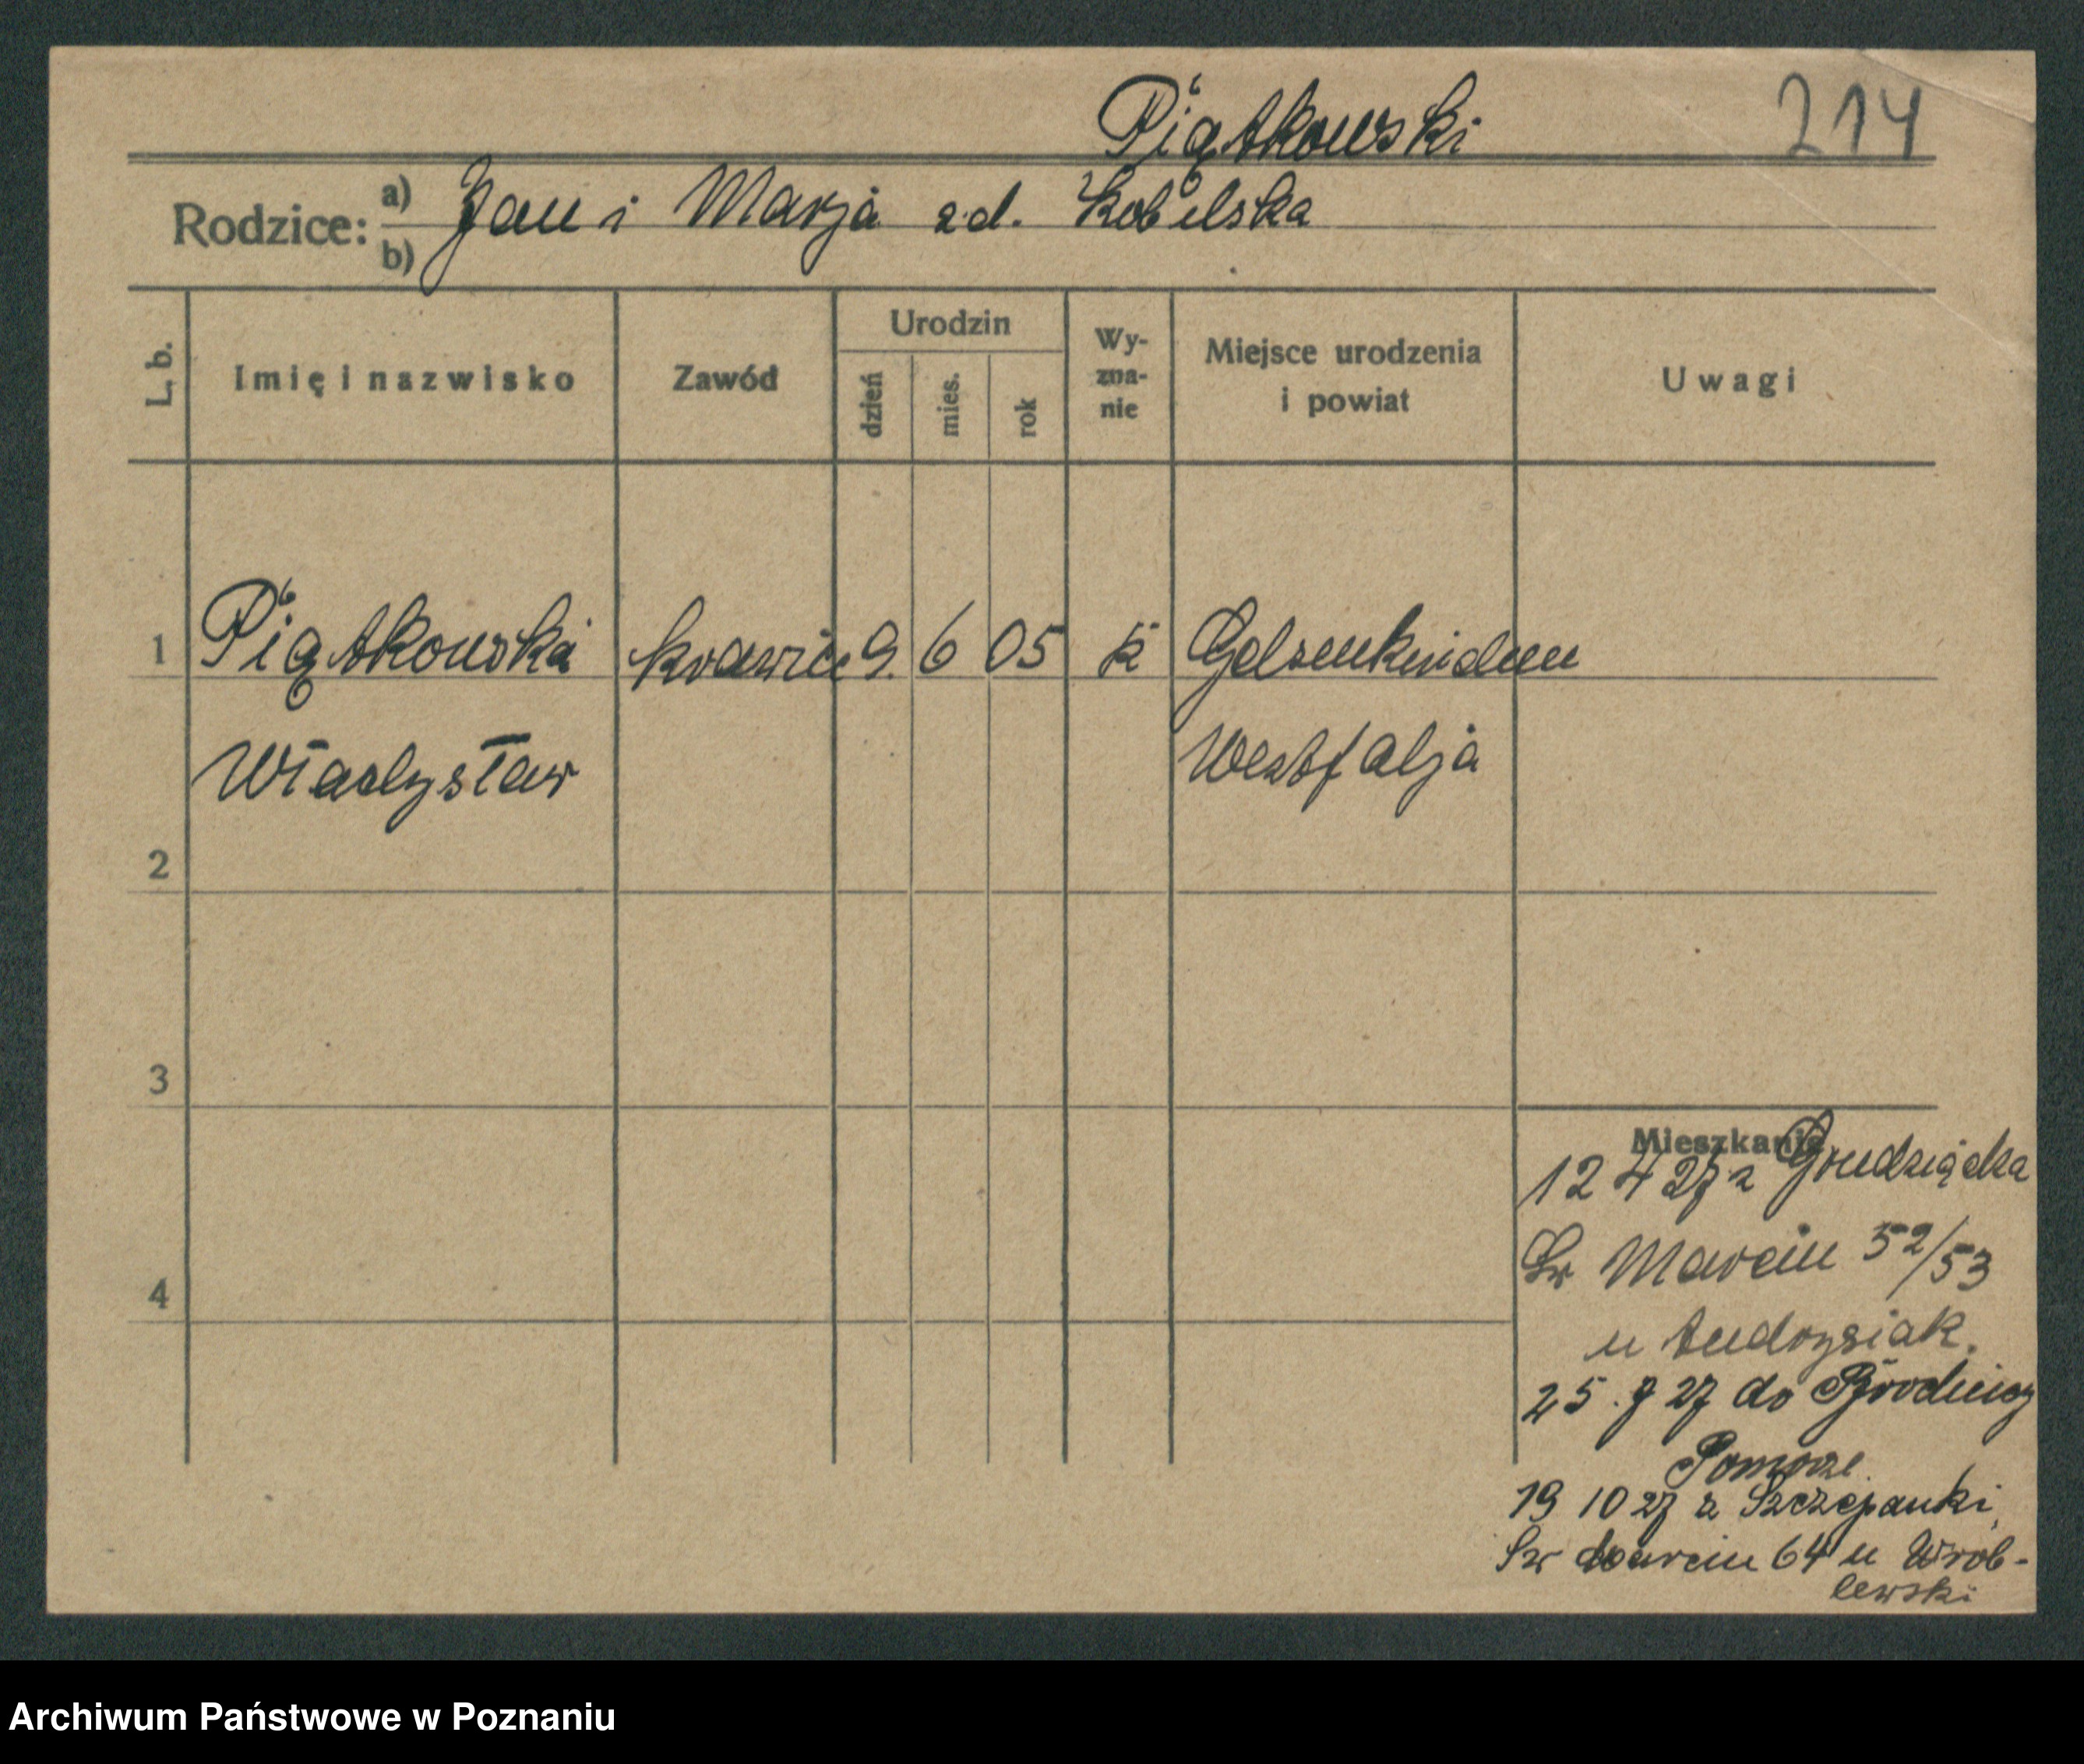 Piątkowski 214
Rodzice: a) Jan i Marja zd. Kobielska
b)
L. b. Imię i nazwisko Zawód Urodzin dzień mies. rok Wy-zna-nie Miejsce urodzenia i powiat Uwagi
1 Piątkowski krawiec 9. 6 05 k Gelsenkirchen
Władysław Westfalja
2
3
Mieszkanie
12 4 27 z Grudziądza
4 Św Marcin 52/53
u Andrzysiak.
25. 7 27 do Brodnicy
Pomorze.
19 10 27 z Szczepanki,
Św Marcin 64 u Wrob-
lewski
Archiwum Państwowe w Poznaniu